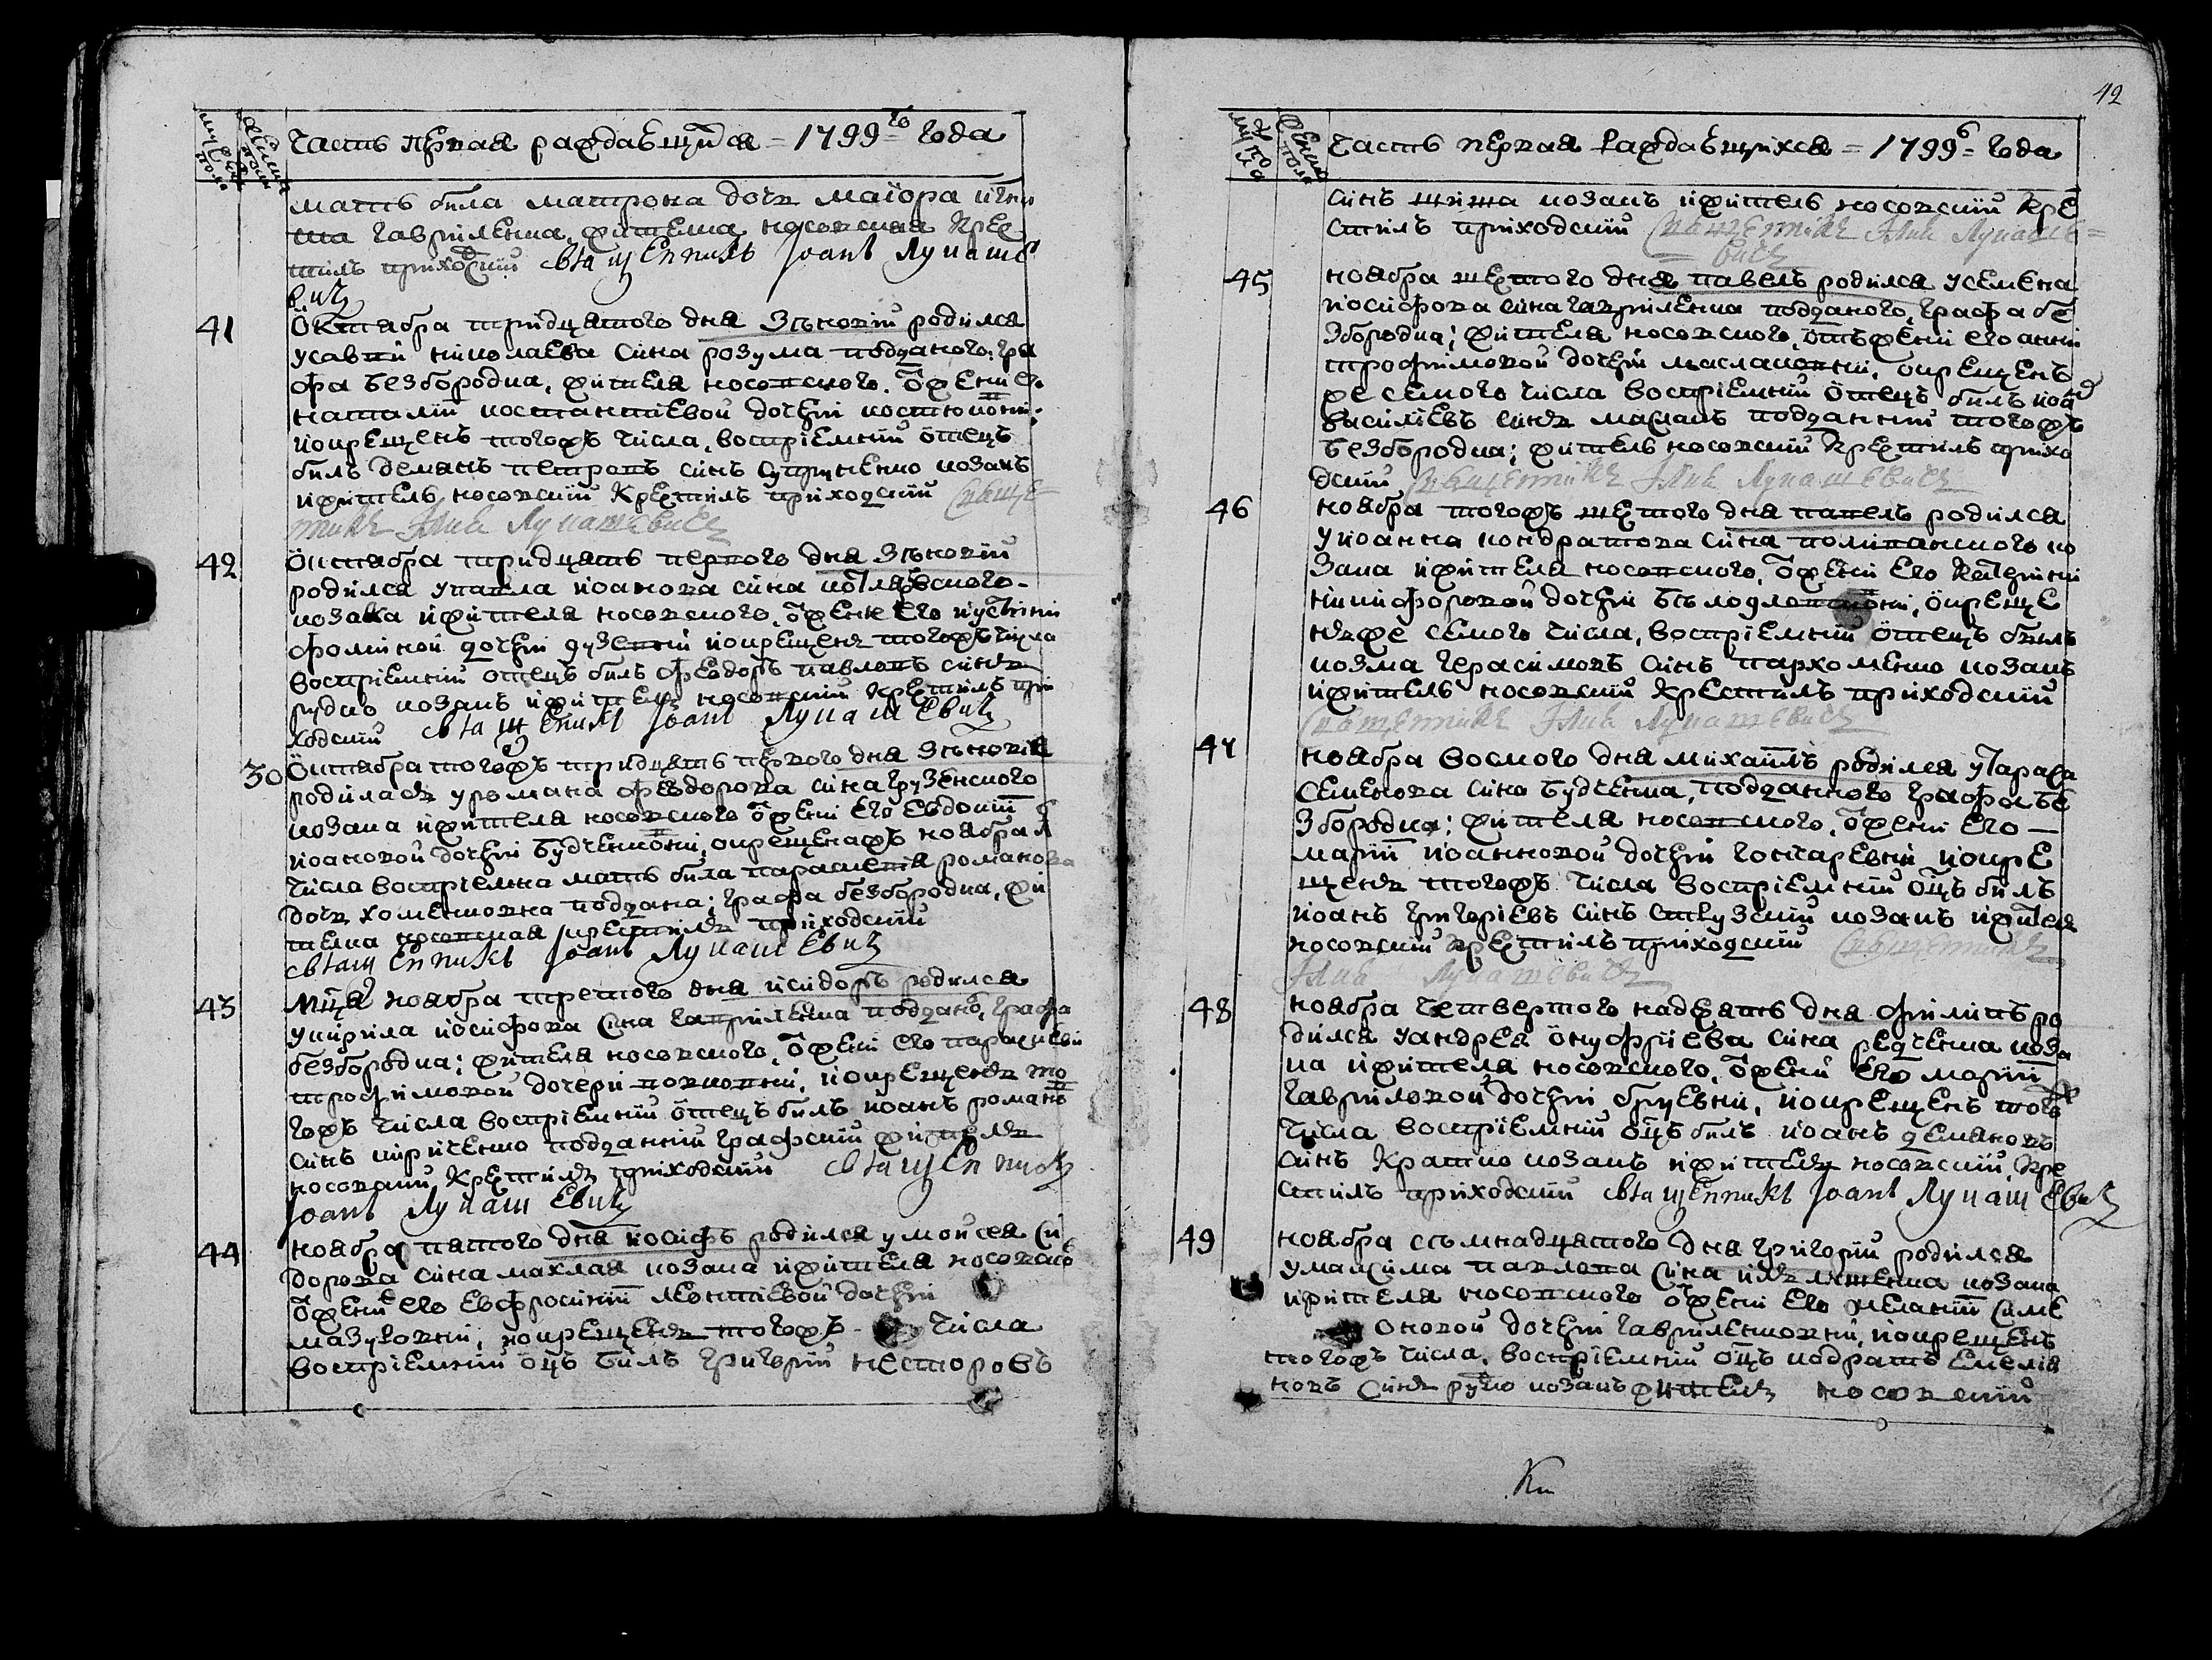 мужеска пола
женска пола
Часть первая раждающихся = 1799го = года
мать била матрона дочь маіора игна
та гавриленка, жителка носовская крес
тилъ приходскій священникъ Іоанъ Лукаше
вичъ
41
Октября тридцятого дня Зѣновій родился
у савы николаева сина розума подданого: гра
фа безбородка, жителя носовского. ѿ жени его
наталіи костантіевой дочери костюковни;
и окрещенъ тогожъ числа, воспріемній отецъ
билъ демянъ петровъ синъ козакъ
и житель носовскій крестилъ приходскій свяще=
нникъ Іоанъ Лукашевичъ
42
Октября тридцять первого дня Зѣновій
родился у павла иоанова сина
козака и жителя носовского. ѿ жени его иустини
фоминой дочери и окрещенъ тогожъ числа
воспріемній отецъ билъ феодоръ павловъ синъ
рудко козакъ и житель носовскій крестилъ при
ходскій священикъ Іоанъ Лукашевичъ
30
Октября тогожъ тридцять первого дня Зѣновія
родилась у романа феодорова сина грузенского
козака и жителя носовского ѿ жени его евдокіи
иоановой дочери будченковни, окрещенажъ ноября
числа воспріемна мать била параскевія романова
дочь хоменковна подданая; графа безбородка, жи
телка носовская крестилъ приходскій
священникъ Іоанъ Лукашевичъ
43
мца ноября третого дня исидоръ родился
у кирила иосифова сина гавриленка подданого, графа
безбородка; жителя носовского, ѿ жени его параскевіи
трофимовой дочери вовковни, и окрещенъ то
гожъ числа воспріемній отецъ билъ иоанъ романовъ
синъ кириченко подданній графскій житель
носовскій крестилъ приходскій священникъ
Іоанъ Лукашевичъ
44
ноября пятого дня иосифъ родился у моисея си
дорова сина махлая козака и жителя носовского
ѿ жени его евфросиніи леонтіевой дочери
мазуровни, и окрещенъ тогожъ числа
воспріемній оцъ билъ григорій несторовъ
42
мужеска пола
женска пола
Часть первая раждающихся = 1799го = года
синъ козакъ и житель носовскій кре
стилъ приходскій священникъ Іоанъ Лукаше=
= вичъ
45
ноября шестого дня павелъ родился у семена
иосифова сина гавриленка подданого, графа бе
збородка; жителя носовского, ѿ жени его анни
трофимовой дочери маслаковни, окрещенъ
же семого числа воспріемній отецъ билъ иоа
василіевъ синъ маслакъ подданній тогожъ
безбородка; житель носовскій крестилъ прихо
дскій священникъ Іоанъ Лукашевичъ
46
ноября тогожъ шестого дня павелъ родился
у иоанна кондратова сина поливанского ко
зака и жителя носовского, ѿ жени его катерини
никифоровой дочери окреще
нъ же семого числа, воспріемній отецъ билъ
козма герасимовъ синъ пархоменко козакъ
и житель носовскій крестилъ приходскій
священникъ Іоанъ Лукашевичъ
47
ноября восмого дня михаилъ родился у тараса
семенова сина будченка, подданного графа бе
збородка; жителя носовского, ѿ жени его —
маріи иоанновой дочери гончаревни и окре
щенъ тогожъ числа воспріемній оцъ билъ
иоанъ григоріевъ синъ козакъ и житель
носовскій крестилъ приходскій священникъ
Іоанъ Лукашевичъ
48
ноября четвертого надесять дня филипъ ро
дился у андрея онуфріева сина редченка коза
ка и жителя носовского, ѿ жени его маріи
гавриловой дочери и окрещенъ тогожъ
числа воспріемній оцъ билъ иоанъ демяновъ
синъ кратко козакъ и житель носовскій кре
стилъ приходскій священникъ Іоанъ Лукашевичъ
49
ноября сѣмнадцятого дня григорій родился
у максима павлова сина илляшенка козака
и жителя носовского ѿ жени его меланіи симе
оновой дочери гавриленковни, и окрещенъ
тогожъ числа, воспріемній оцъ кодратъ емелія
новъ синъ козакъ житель носовскій